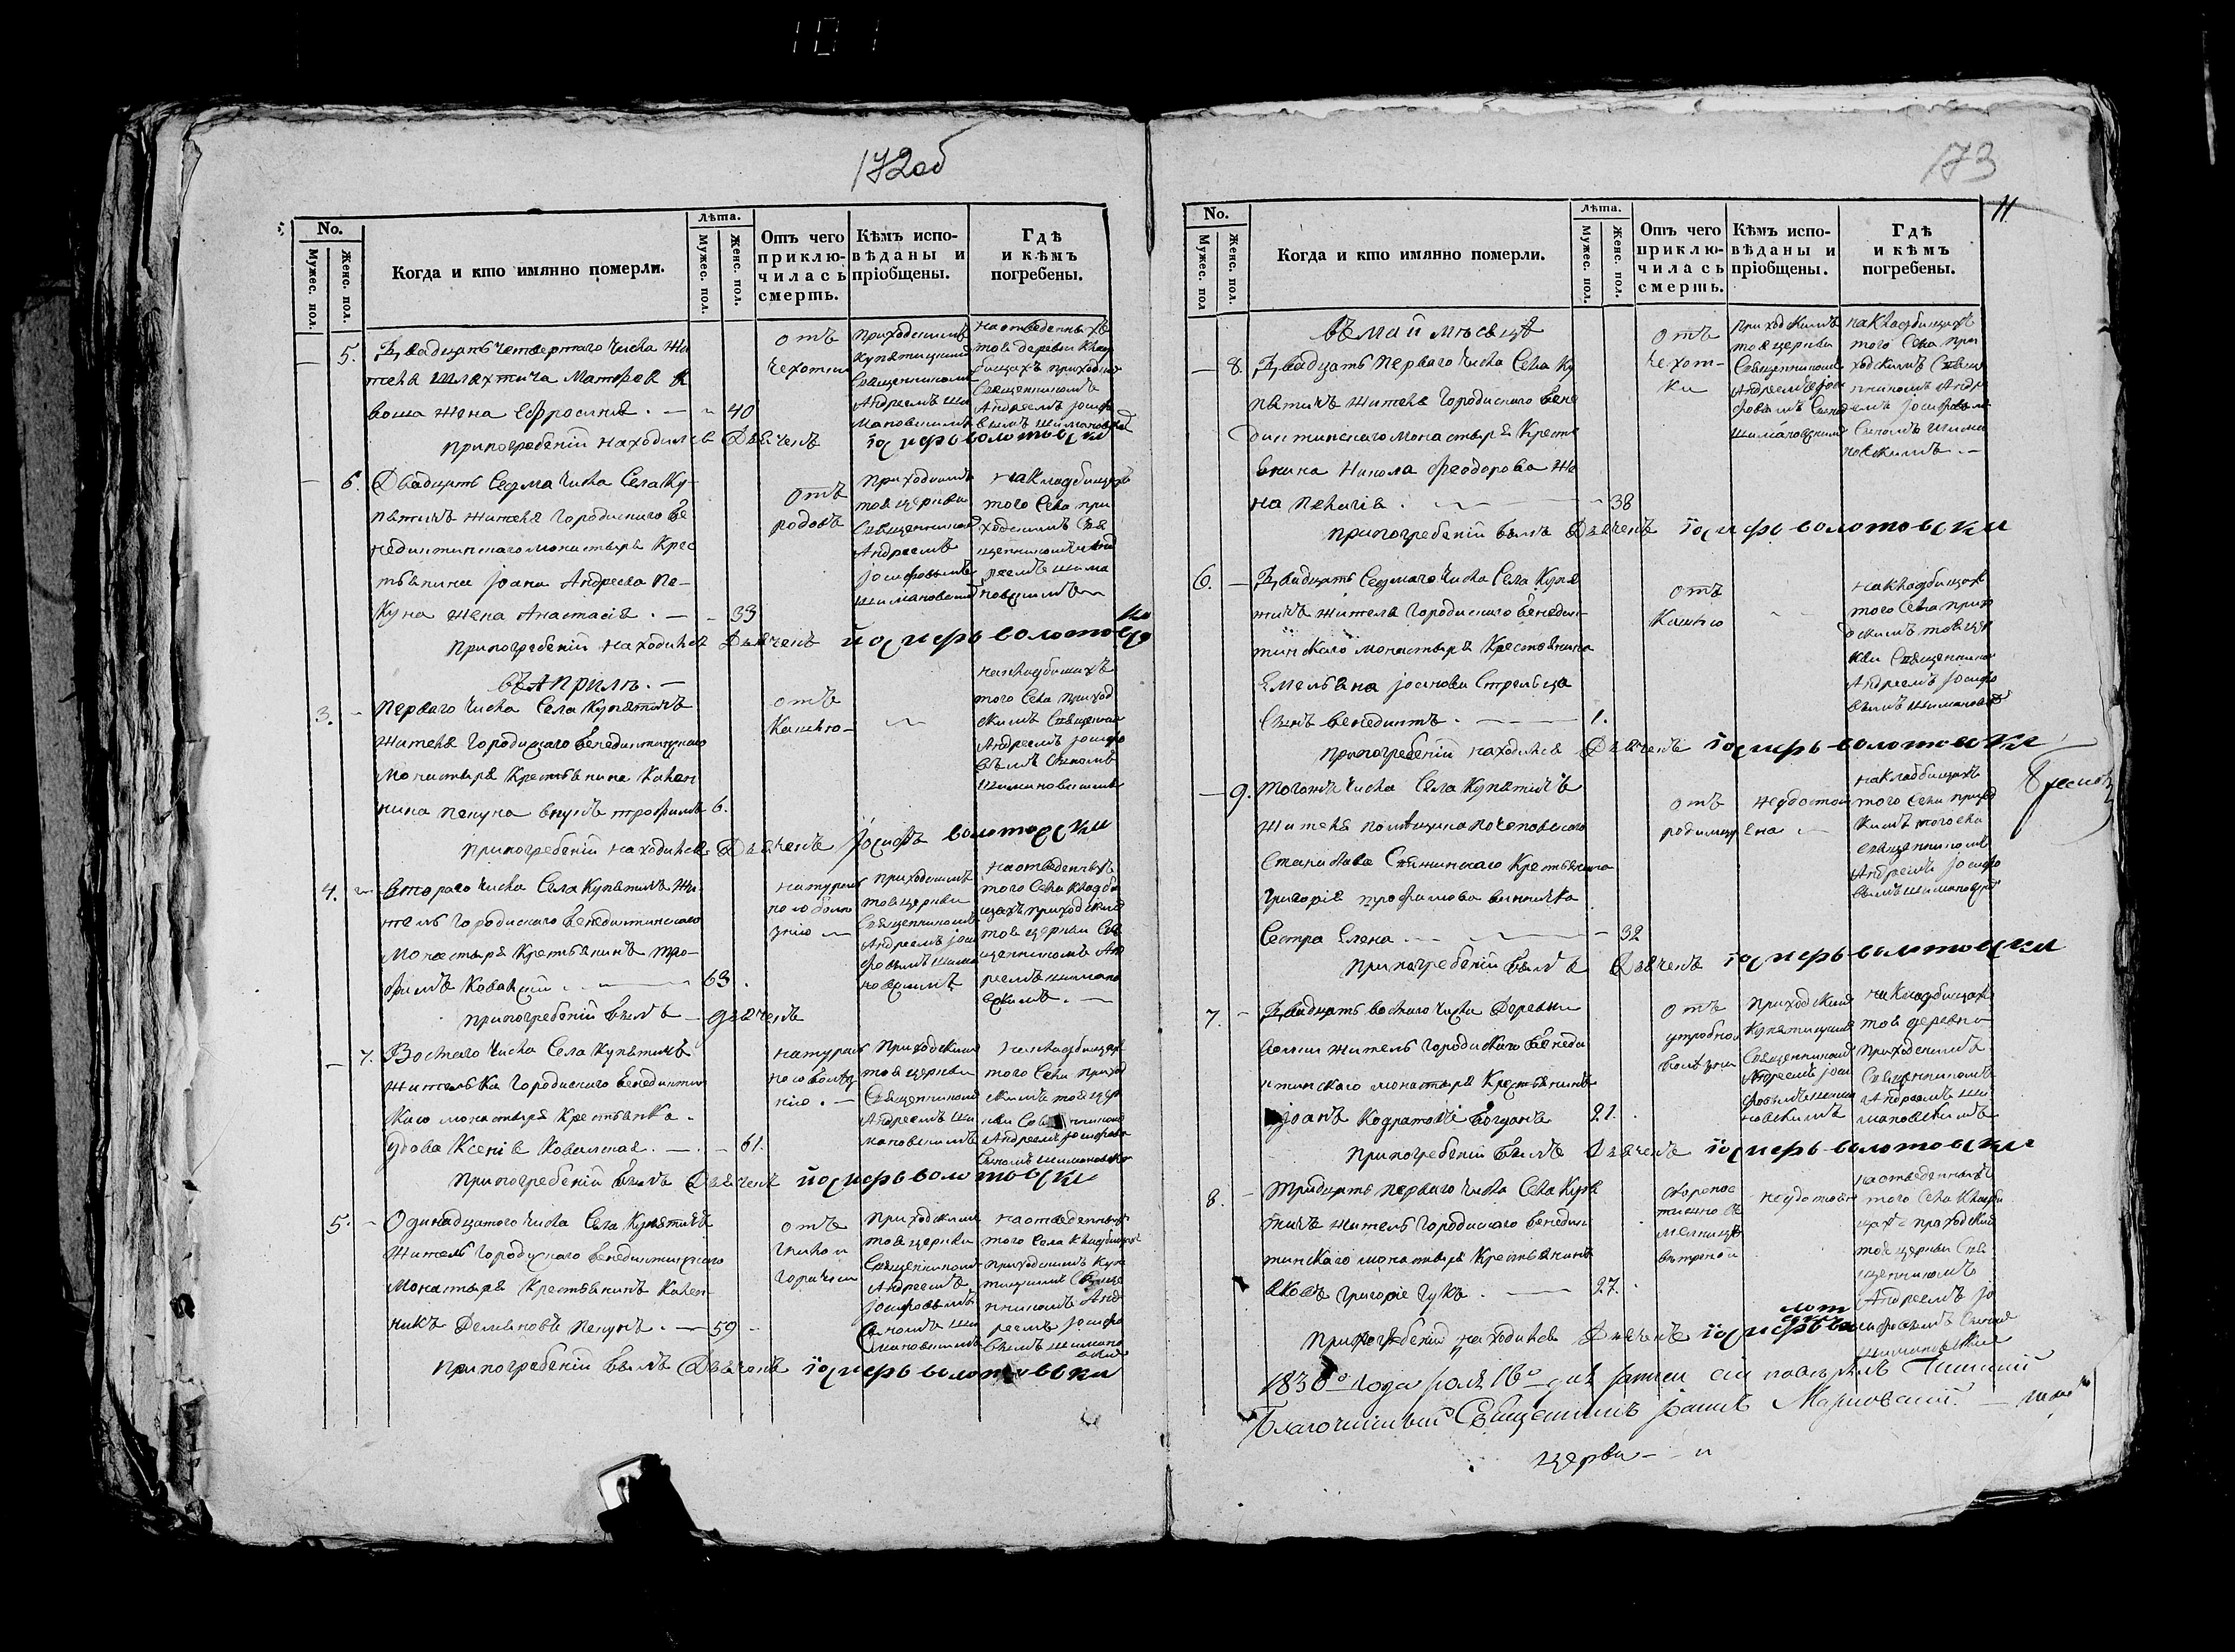 101
172об
No.
Мужес. пол.
Женс. пол.
Когда и кто имянно померли.
лѣта.
Мужес. пол.
Женс. пол.
Отъ чего приклю-
чилась смерть.
Кѣмъ испо-
вѣданы и
пріобщены.
Гдѣ
и кѣмъ
погребены.
5. Двадцать четвертаго числа жи
теля шляхтича Матфея
жена Ефросиня. — 40
отъ
чехотки
приходскимъ
Священникомъ
Андреемъ
на отведенныхъ
той деревни
приходскимъ
Священникомъ
Андреемъ
при погребеніи находился Дьячекъ Іосифъ волотовски
6. Двадцать седма числа села Ку-
пятичъ жителя Городискаго Бе
недиктинскаго монастыря Крес
тьянина Іоана Андреева Пе-
куна жена Анастасія. — 33
отъ
родовъ
приходскимъ
той церкви
Священникомъ
Андреемъ
Іосифовымъ
Шимановским
на кладбищахъ
того села при
ходскимъ Свя
щенникомъ Анд
реемъ Шима
новскимъ
при погребеніи находился Дьячекъ Йосифъ волотовски
въ Априлѣ. —
3. Перваго числа села Купятичъ
жителя Городискаго Бенедиктинскаго
монастыря Крестьянина Кален
ника Пекуна внукъ трофимъ 6.
отъ
Кашлю
на кладбищахъ
того села приход
скимъ Священник
Андреемъ Іосифо
вымъ сыномъ
Шимановскимъ
при погребеніи находился Дьячекъ Іосифъ волотовски
4. втораго числа села Купятичъ жи
тель Городискаго Бенедиктинскаго
монастыря Крестьянинъ Тро-
фимъ Ковальскій. — 63.
натураль
ною болѣ
знію —
приходскимъ
той церкви
Священникомъ
Андреемъ Іоси
фовымъ Шима
новскимъ
на отведенныхъ
того села кладби
щахъ приходским
той церкви Свя
щенникомъ Анд
реемъ Шимано
вскимъ. —
при погребеніи былъ — дьячекъ
7. Восмаго числа села Купятичъ
жителька Городискаго Бенедиктин
скаго монастыря Крестьянка
вдова Ксенія Ковальская. — 61.
натураль
ною болѣз
нію. —
Приходским
той церкви
Священником
Андреемъ Ши
мановскимъ
на кладбищах
того села приход
скимъ той цер
кви
Андреемъ Іосифовы
сыномъ Шимановск
при погребеніи былъ Дьячекъ Йосифъ волотовски
5. Одинадцатого числа села Купятичъ
житель Городискаго Бенедиктинскаго
монастыря Крестьянинъ Кален
никъ Демяновъ Пекунъ. — 59
отъ
гнилой
горячки
приходским
той церкви
Священником
Андреемъ
Іосифовымъ
сыномъ Ши
мановскимъ
на отведенныхъ
того села кладбищахъ
приходскимъ Купя
тицкимъ Священ
никомъ Анд
реемъ Іосифо
вымъ Шимано
вским
при погребеніи былъ Дьячекъ Іосифъ волотовски
173
11
No.
Мужес. пол
Женс. пол.
Когда и кто имянно померли.
лѣта.
Мужес. пол.
Женс. пол.
Отъ чего
приклю-
чилась
смерть.
Кѣмъ испо-
вѣданы и
пріобщены.
Гдѣ
и кѣмъ
погребены.
въ май мѣсяцѣ
8. Двадцать перваго числа села Ку
пятичъ жителя Городискаго Бене
диктинскаго монастыря Кресть
янина Никола Феодорова же
на Пелагія. — 38
отъ
чехот-
ки
приходскимъ
той церкви
Священником
Андреемъ Іоси
фовымъ Сыном
Шимановским
на кладбищахъ
того села при
ходскимъ Свящ
нникомъ Андре
емъ Іосифовым
Сыномъ Шима
новскимъ. —
при погребеніи былъ Дьячекъ Іосифъ волотовски
6. Двадцать седмаго числа Села Купя
тичъ жителя Городискаго Бенедик-
тинскаго монастыря Крестьянина
Емельяна Іоанова Стрельца
сынъ Бенедиктъ. — 1.
отъ
Кашлю
на кладбищахъ
того села прихо
дскимъ той цер
кви Священником
Андреемъ Іосифо
вымъ Шимановск
при погребеніи находился Дьячекъ Іосифъ волотовски
9. того жъ числа села Купятичъ
жителя помѣщика
Станислава Крестьянина
Григорія трофимова
Сестра Елена — 32
отъ
родимцу
неудостои
ена —
на кладбищахъ
того села приход
скимъ того села
священникомъ
Андреемъ Іосифо
вымъ Шимановск
при погребеніи былъ Дьячекъ Іосифъ волотовски
7. Двадцать восмаго числа Деревни
житель Городискаго Бенеди
ктинскаго монастыря Крестьянинъ
Іоанъ Кодратовъ Богданъ 21.
отъ
утробной
болѣзни
приходским
Купятицким
Священником
Андреемъ Іоси
фовымъ Шима
новскимъ
на кладбищахъ
той деревни
приходскимъ
Священникомъ
Андреемъ Ши
мановскимъ
при погребеніи былъ Дьячекъ Іосифъ волотовски
8. тридцать перваго числа Села Купя
тичъ житель Городискаго Бенедик
тинскаго монастыря Крестьянинъ
Яковъ Григоріе Гукъ. — 27.
скоропос
тижно въ
мельницѣ
вѣтреной
неудостоен
на отведенныхъ
того села кладби
щахъ приходским
той церкви Свя
щенникомъ
Андреемъ Іо
сифовымъ Сыном
Шимановским
при погребеніи находился Дьячекъ Іосифъ волотовски
1830го года Іюля 16го дня записи сіи повѣрялъ Пинскій
Благочинный Священникъ Іоаннъ Марковскій.
церкви